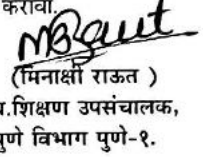 करावा.
(मिनाक्षी राऊत )
शिक्षण उपसंचालक,
पुणे विभाग पुणे-१.